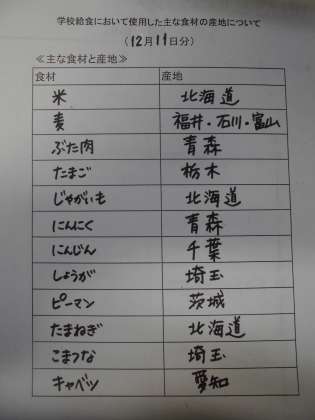 学校給食において使用した主な食材の産地について
(12月11日分)
≪主な食材と産地≫
食材 産地
米 北海道
麦 福井・石川・富山
ぶた肉 青森
たまご 栃木
じゃがいも 北海道
にんにく 青森
にんじん 千葉
しょうが 埼玉
ピーマン 茨城
たまねぎ 北海道
こまつな 埼玉
キャベツ 愛知